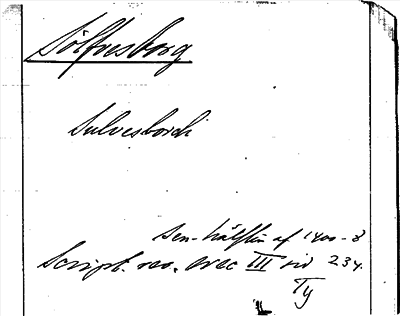 Sölfvesborg
Sulvesborch
Sen. hälften af 1400-
Script. rer. svec III sid 234.
Ty